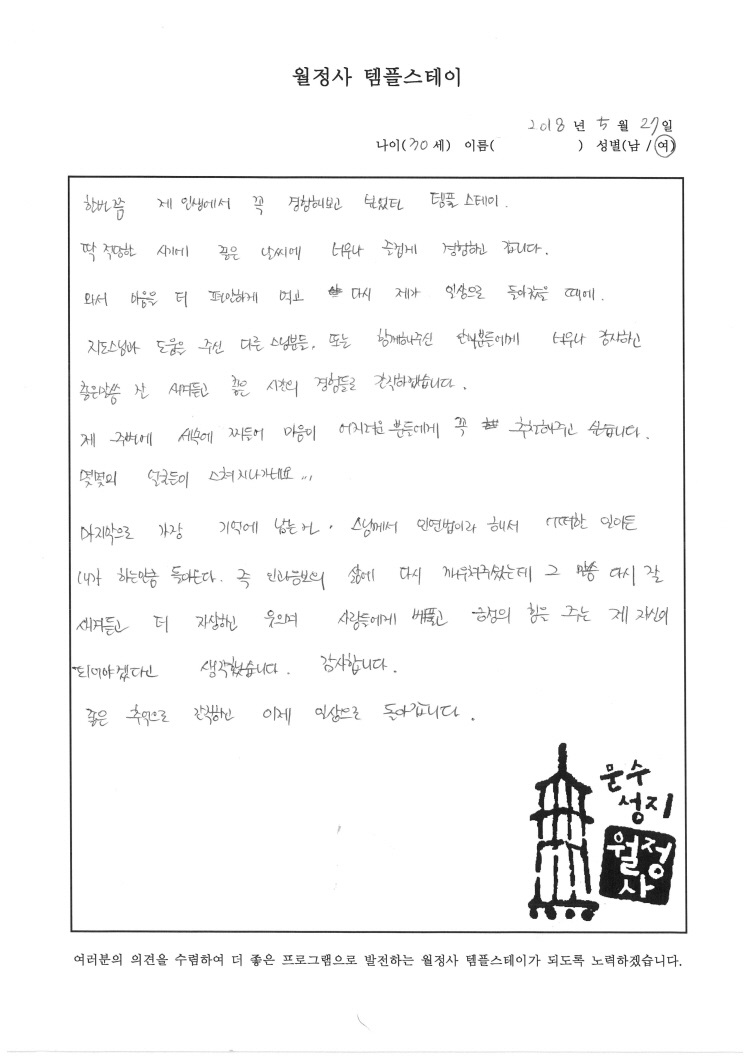 월정사 템플스테이
2018 년 5 월 27 일
나이(30 세) 이름( ) 성별(남 / 여)
한번쯤 제 인생에서 꼭 경험해보고 싶었던 템플 스테이.
딱 적당한 시기에 좋은 날씨에 너무나 즐겁게 경험하고 갑니다.
와서 마음을 더 편안하게 먹고 다시 제가 일상으로 돌아갔을 때에.
지도스님과 도움을 주신 다른 스님분들, 또는 함께해주신 분들에게 너무나 감사하고
좋은말씀 잘 새겨듣고 좋은 시간의 경험들로 간직하겠습니다.
제 주변에 세속에 찌들어 마음이 어지러운 분들에게 꼭 추천해주고 싶습니다.
몇몇의 얼굴들이 스쳐지나가네요...
마지막으로 가장 기억에 남는건. 스님께서 인연법이라 해서 어떠한 일이든
내가 하는만큼 돌아온다. 즉 인과응보의 삶에 다시 깨우쳐주셨는데 그 말씀 다시 잘
새겨듣고 더 자상하고 웃으며 사람들에게 베풀고 긍정의 힘을 주는 제 자신이
되어야겠다고 생각했습니다. 감사합니다.
좋은 추억으로 간직하고 이제 일상으로 돌아갑니다.
문수
성지
월정
사
여러분의 의견을 수렴하여 더 좋은 프로그램으로 발전하는 월정사 템플스테이가 되도록 노력하겠습니다.